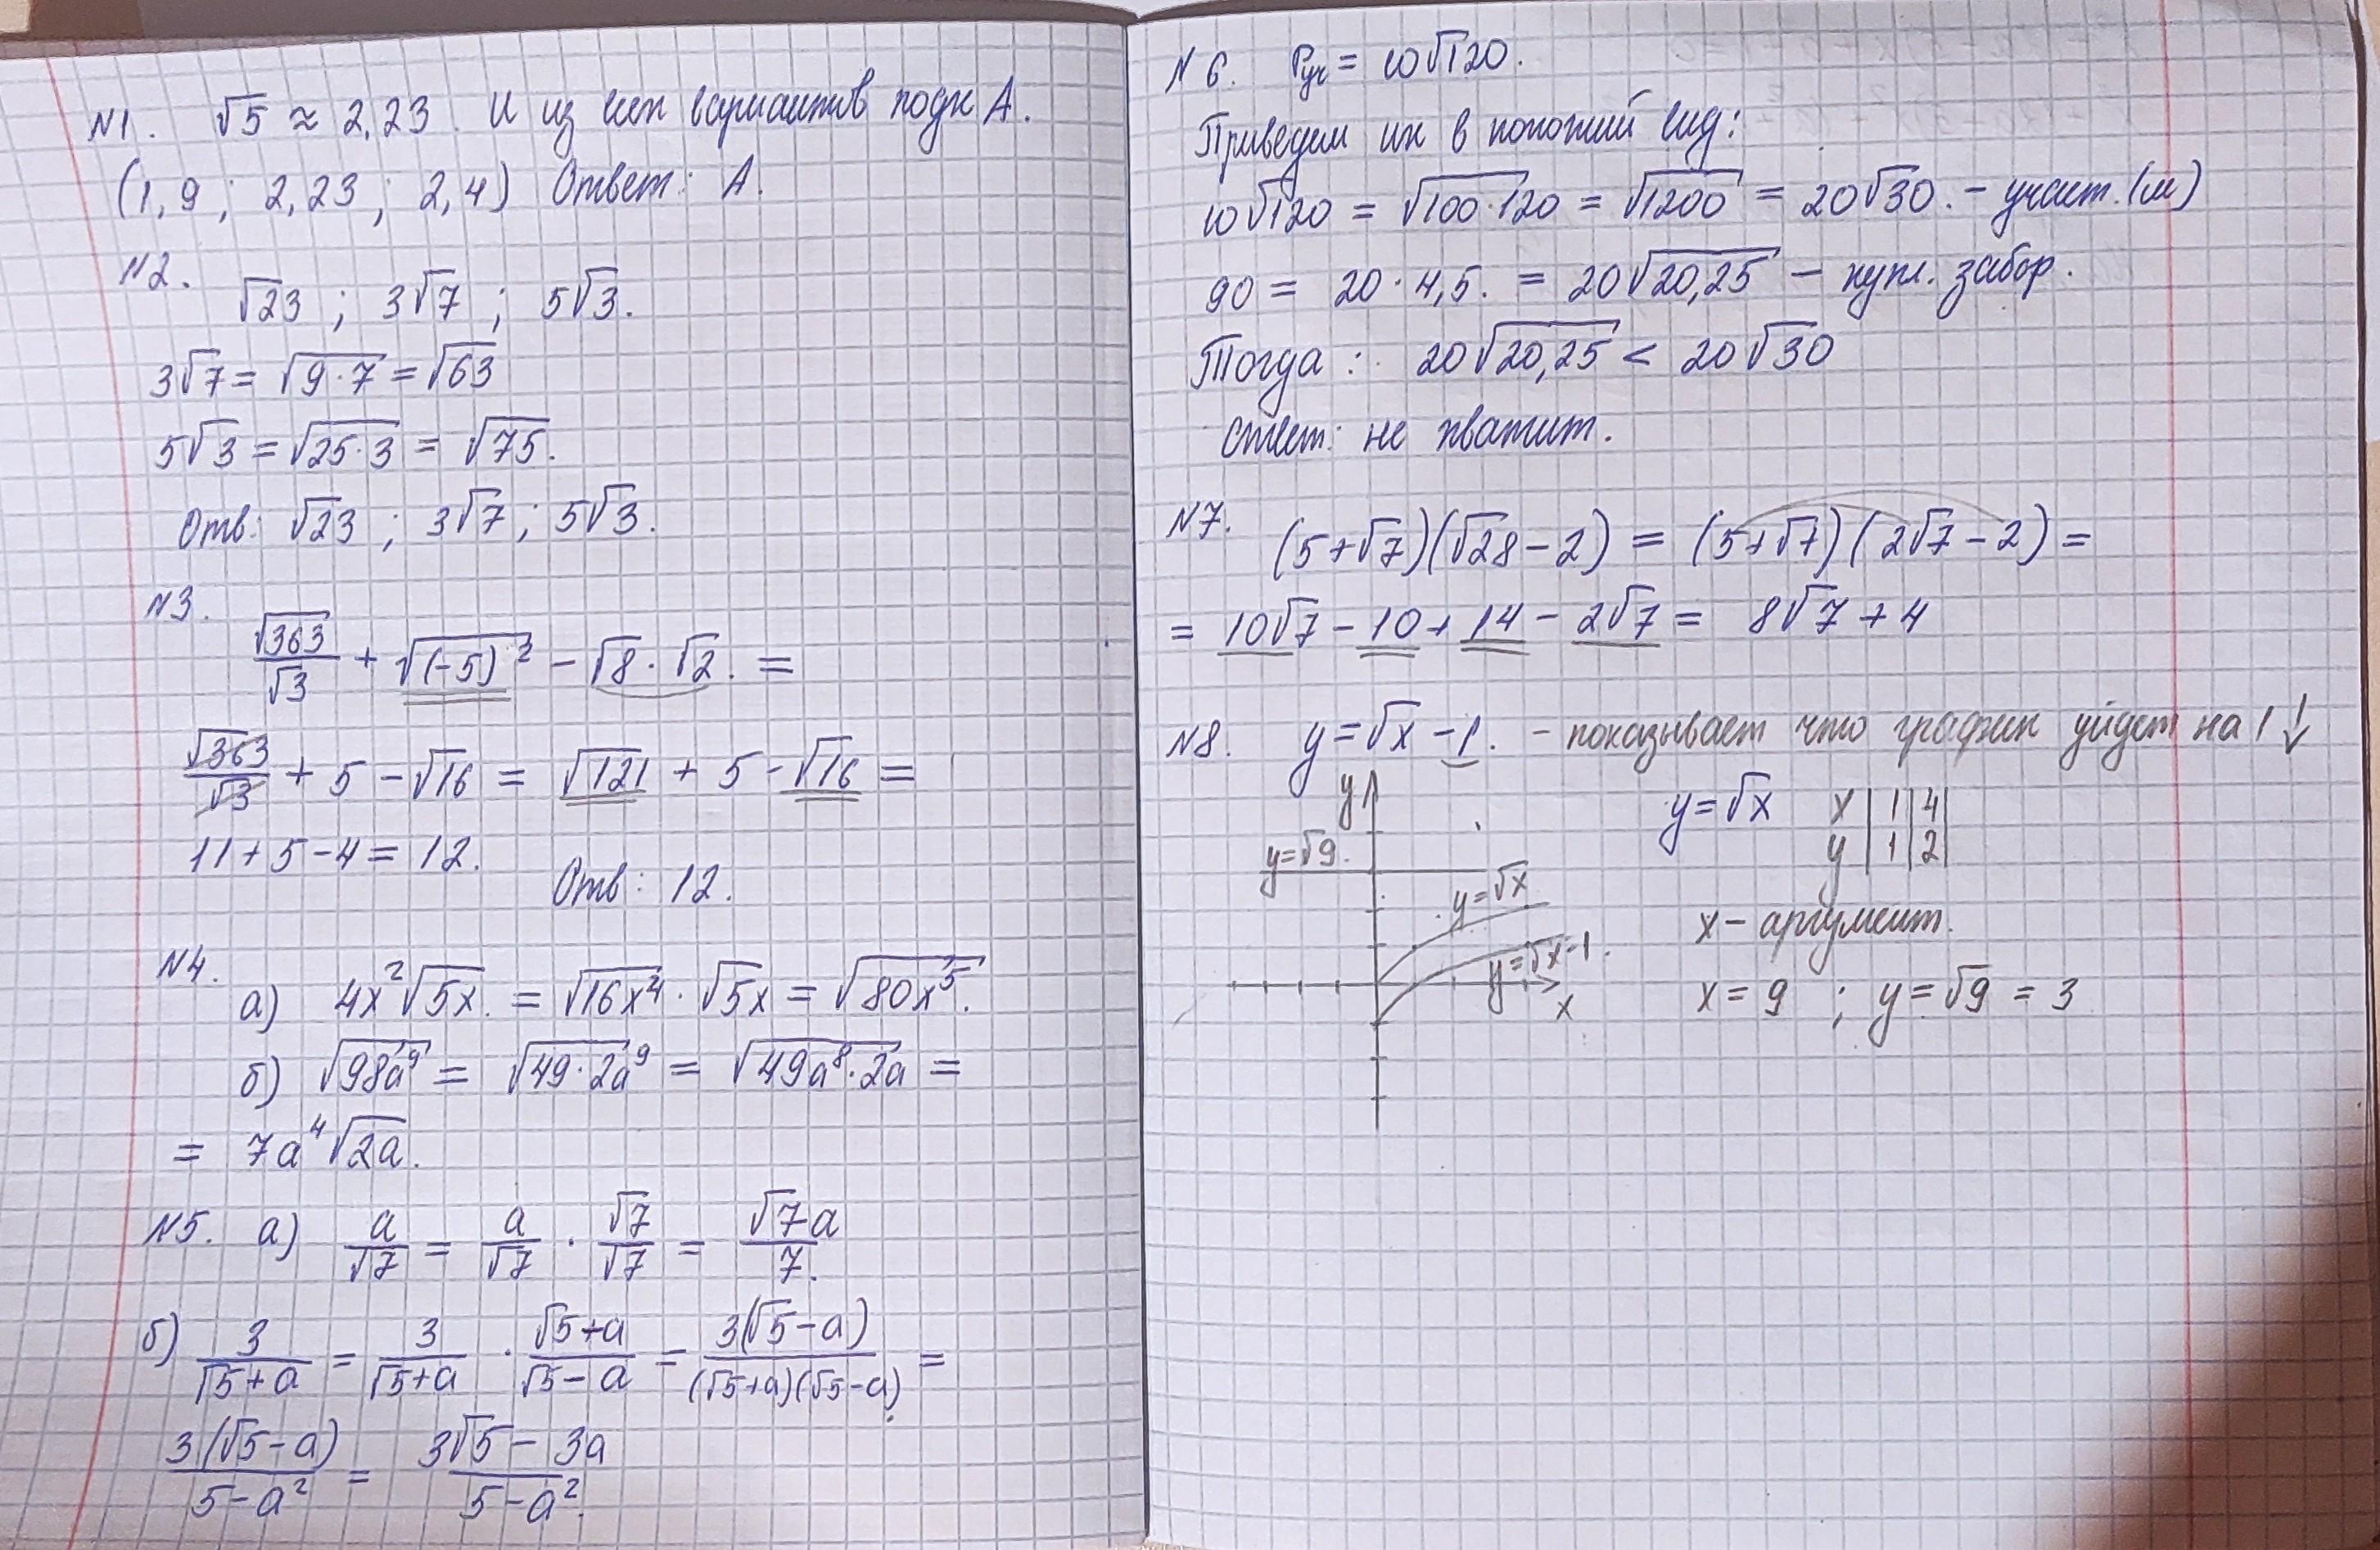 N1. √5 ≈ 2,23. И из всех вариантов подх А.
(1,9; 2,23; 2,4) Ответ: А.
N2.
√23; 3√7; 5√3.
3√7 = √9·7 = √63
5√3 = √25·3 = √75.
Отв: √23; 3√7; 5√3.
N3.
√363/√3 + √(-5)² - √8·√2. =
√363/√3 + 5 - √16 = √121 + 5 - √16 =
11 + 5 - 4 = 12.
Отв: 12.
N4.
а) 4x²√5x. = √16x⁴·√5x = √80x⁵.
б) √98a⁹ = √49·2a⁹ = √49a⁸·2a =
= 7a⁴√2a.
N5. а) a/√7 = a/√7 · √7/√7 = √7a/7.
б) 3/(√5+a) = 3/(√5+a) · (√5+a)/(√5-a) = 3(√5-a)/((√5+a)(√5-a)) =
3(√5-a)/(5-a²) = (3√5-3a)/(5-a²).
N6. Pуч = 10√120.
Приведем их в похожий вид:
10√120 = √100·120 = √1200 = 20√30. - участ. (м)
90 = 20·4,5. = 20√20,25 - купл. забор.
Тогда: 20√20,25 < 20√30
Ответ: не хватит.
N7. (5+√7)(√28-2) = (5+√7)(2√7-2) =
= 10√7 - 10 + 14 - 2√7 = 8√7 + 4
N8. y = √x - 1. - показывает что график уйдет на 1 ↓
y
y = √x x | 1 | 4 |
y | 1 | 2 |
y=√9.
y=√x
y=√x-1.
x
x - аргумент.
x = 9 ; y = √9 = 3